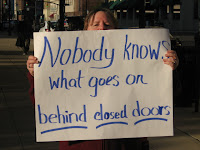 Nobody knows
what goes on
behind closed doors